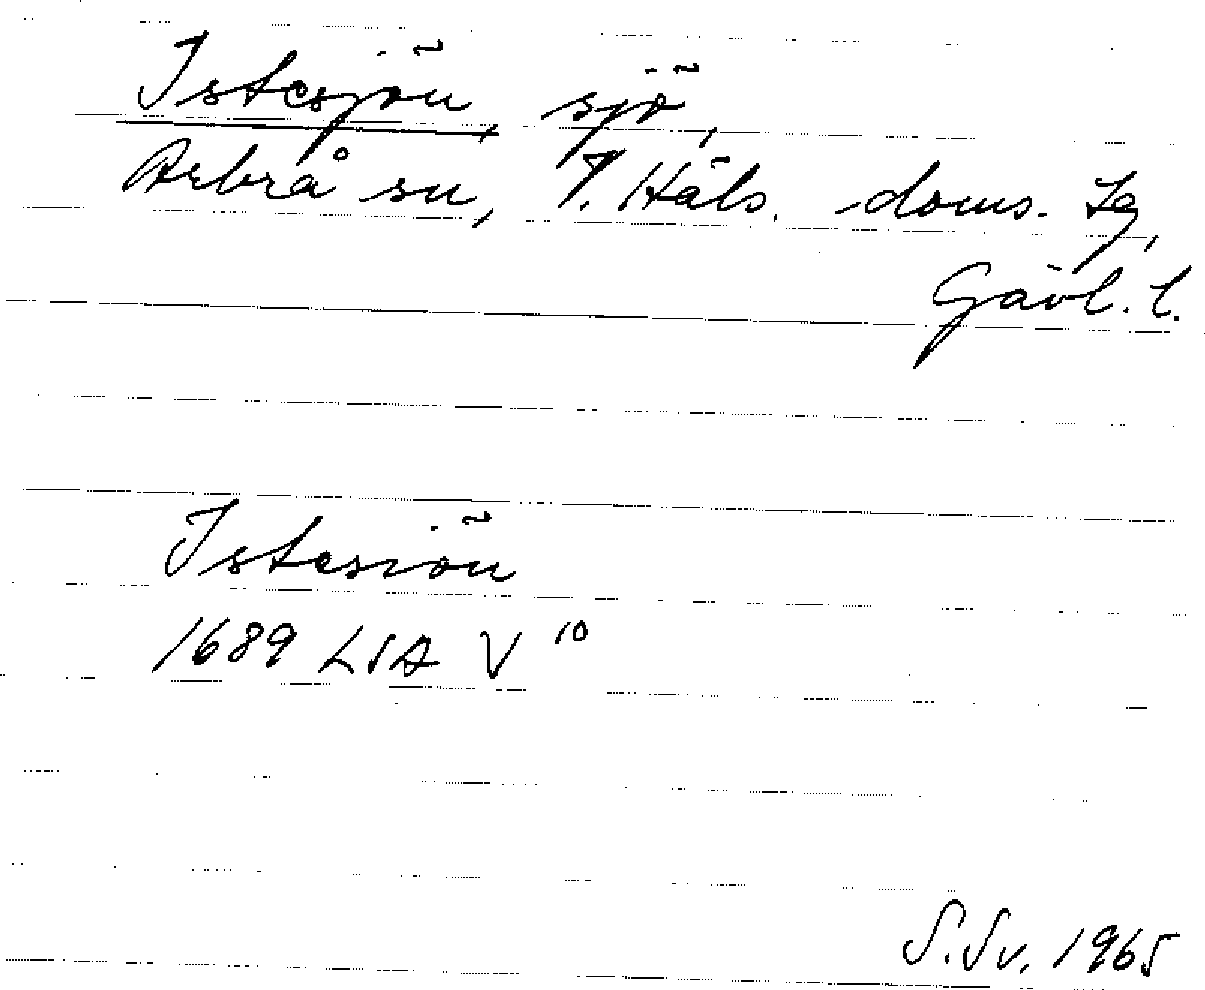 Istesjön, sjö,
Arbrå sn, V. Häls. doms. tg,
Gävl. l.
Istesiön
1689 LSA V 10
S. Sv. 1965